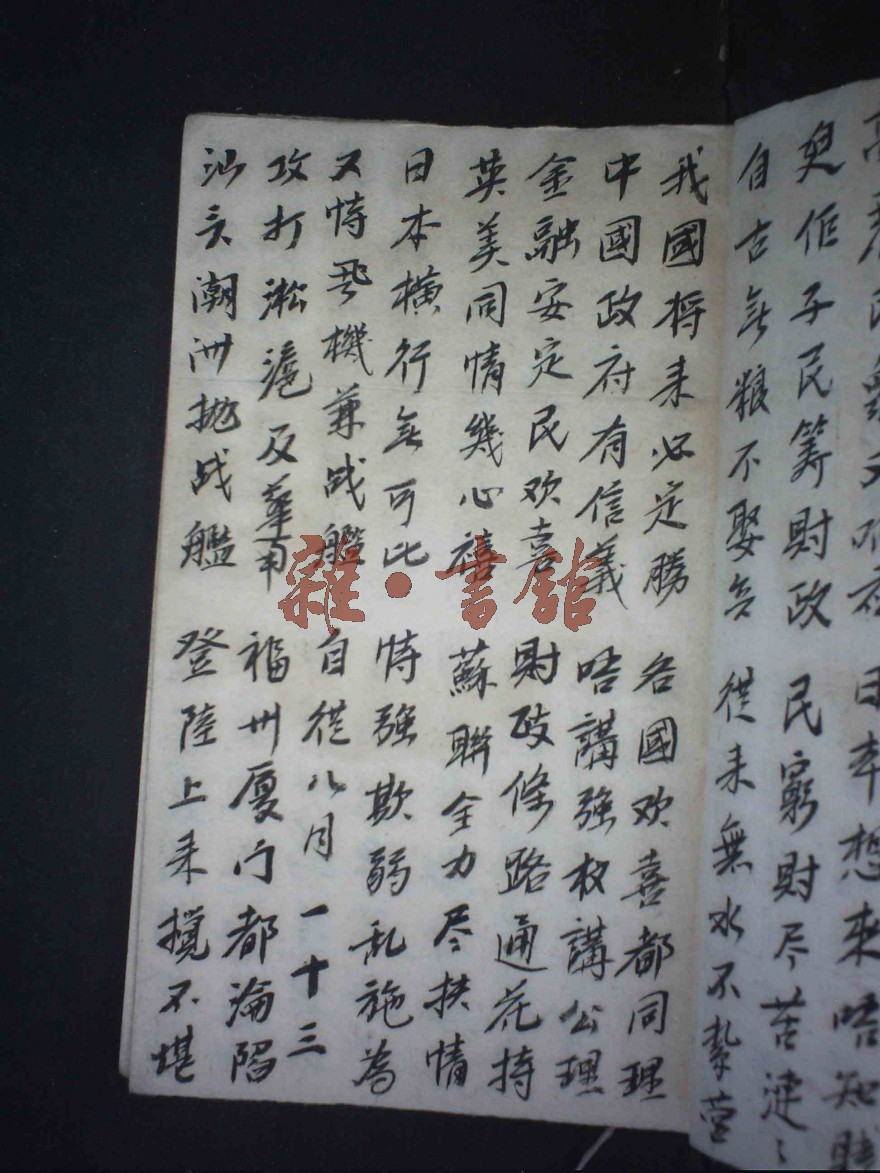 日本想來唔知
臾佢子民筹財政 民窮財尽苦凄〻
自古無粮不娶兵 從来無水不紮营
我國将来必定勝 各國欢喜都同理
中國政府有信義 唔講強权講公理
金融安定民欢喜 財政條路通花持
英美同情幾心禧 蘇聯全力尽扶情
日本橫行無可比 恃強欺弱乱施為
又恃飛機兼战艦 自從八月一十三
攻打淞滬及華南 福州厦门都淪陷
汕头潮州拋战艦 登陸上来搅不堪
雜·書館